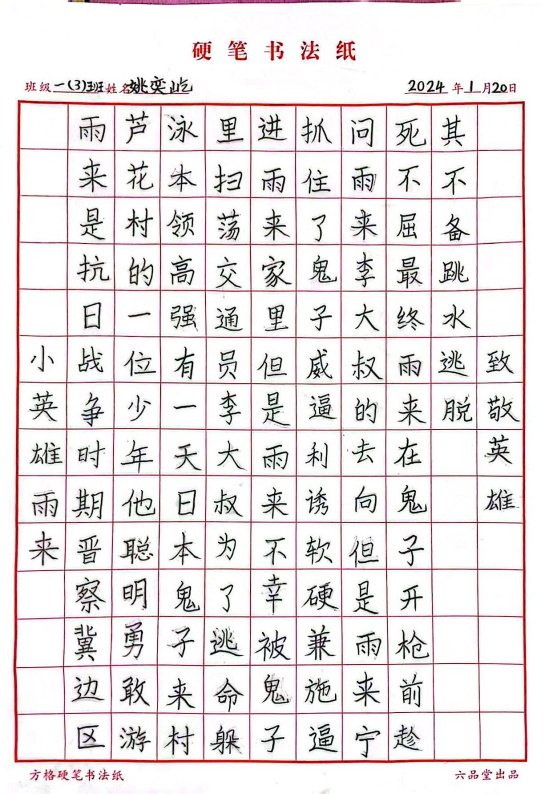 硬笔书法纸
班级一(3)班姓名姚奕屹
2024年1月20日
小英雄雨来
雨来是抗日战争时期晋察冀边区
芦花村的一位少年他聪明勇敢游
泳本领高强有一天日本鬼子来村
里扫荡交通员李大叔为了逃命躲
进雨来家里但是雨来不幸被鬼子
抓住了鬼子威逼利诱软硬兼施逼
问雨来李大叔的去向但是雨来宁
死不屈最终雨来在鬼子开枪前趁
其不备跳水逃脱
致敬英雄
方格硬笔书法纸
六品堂出品